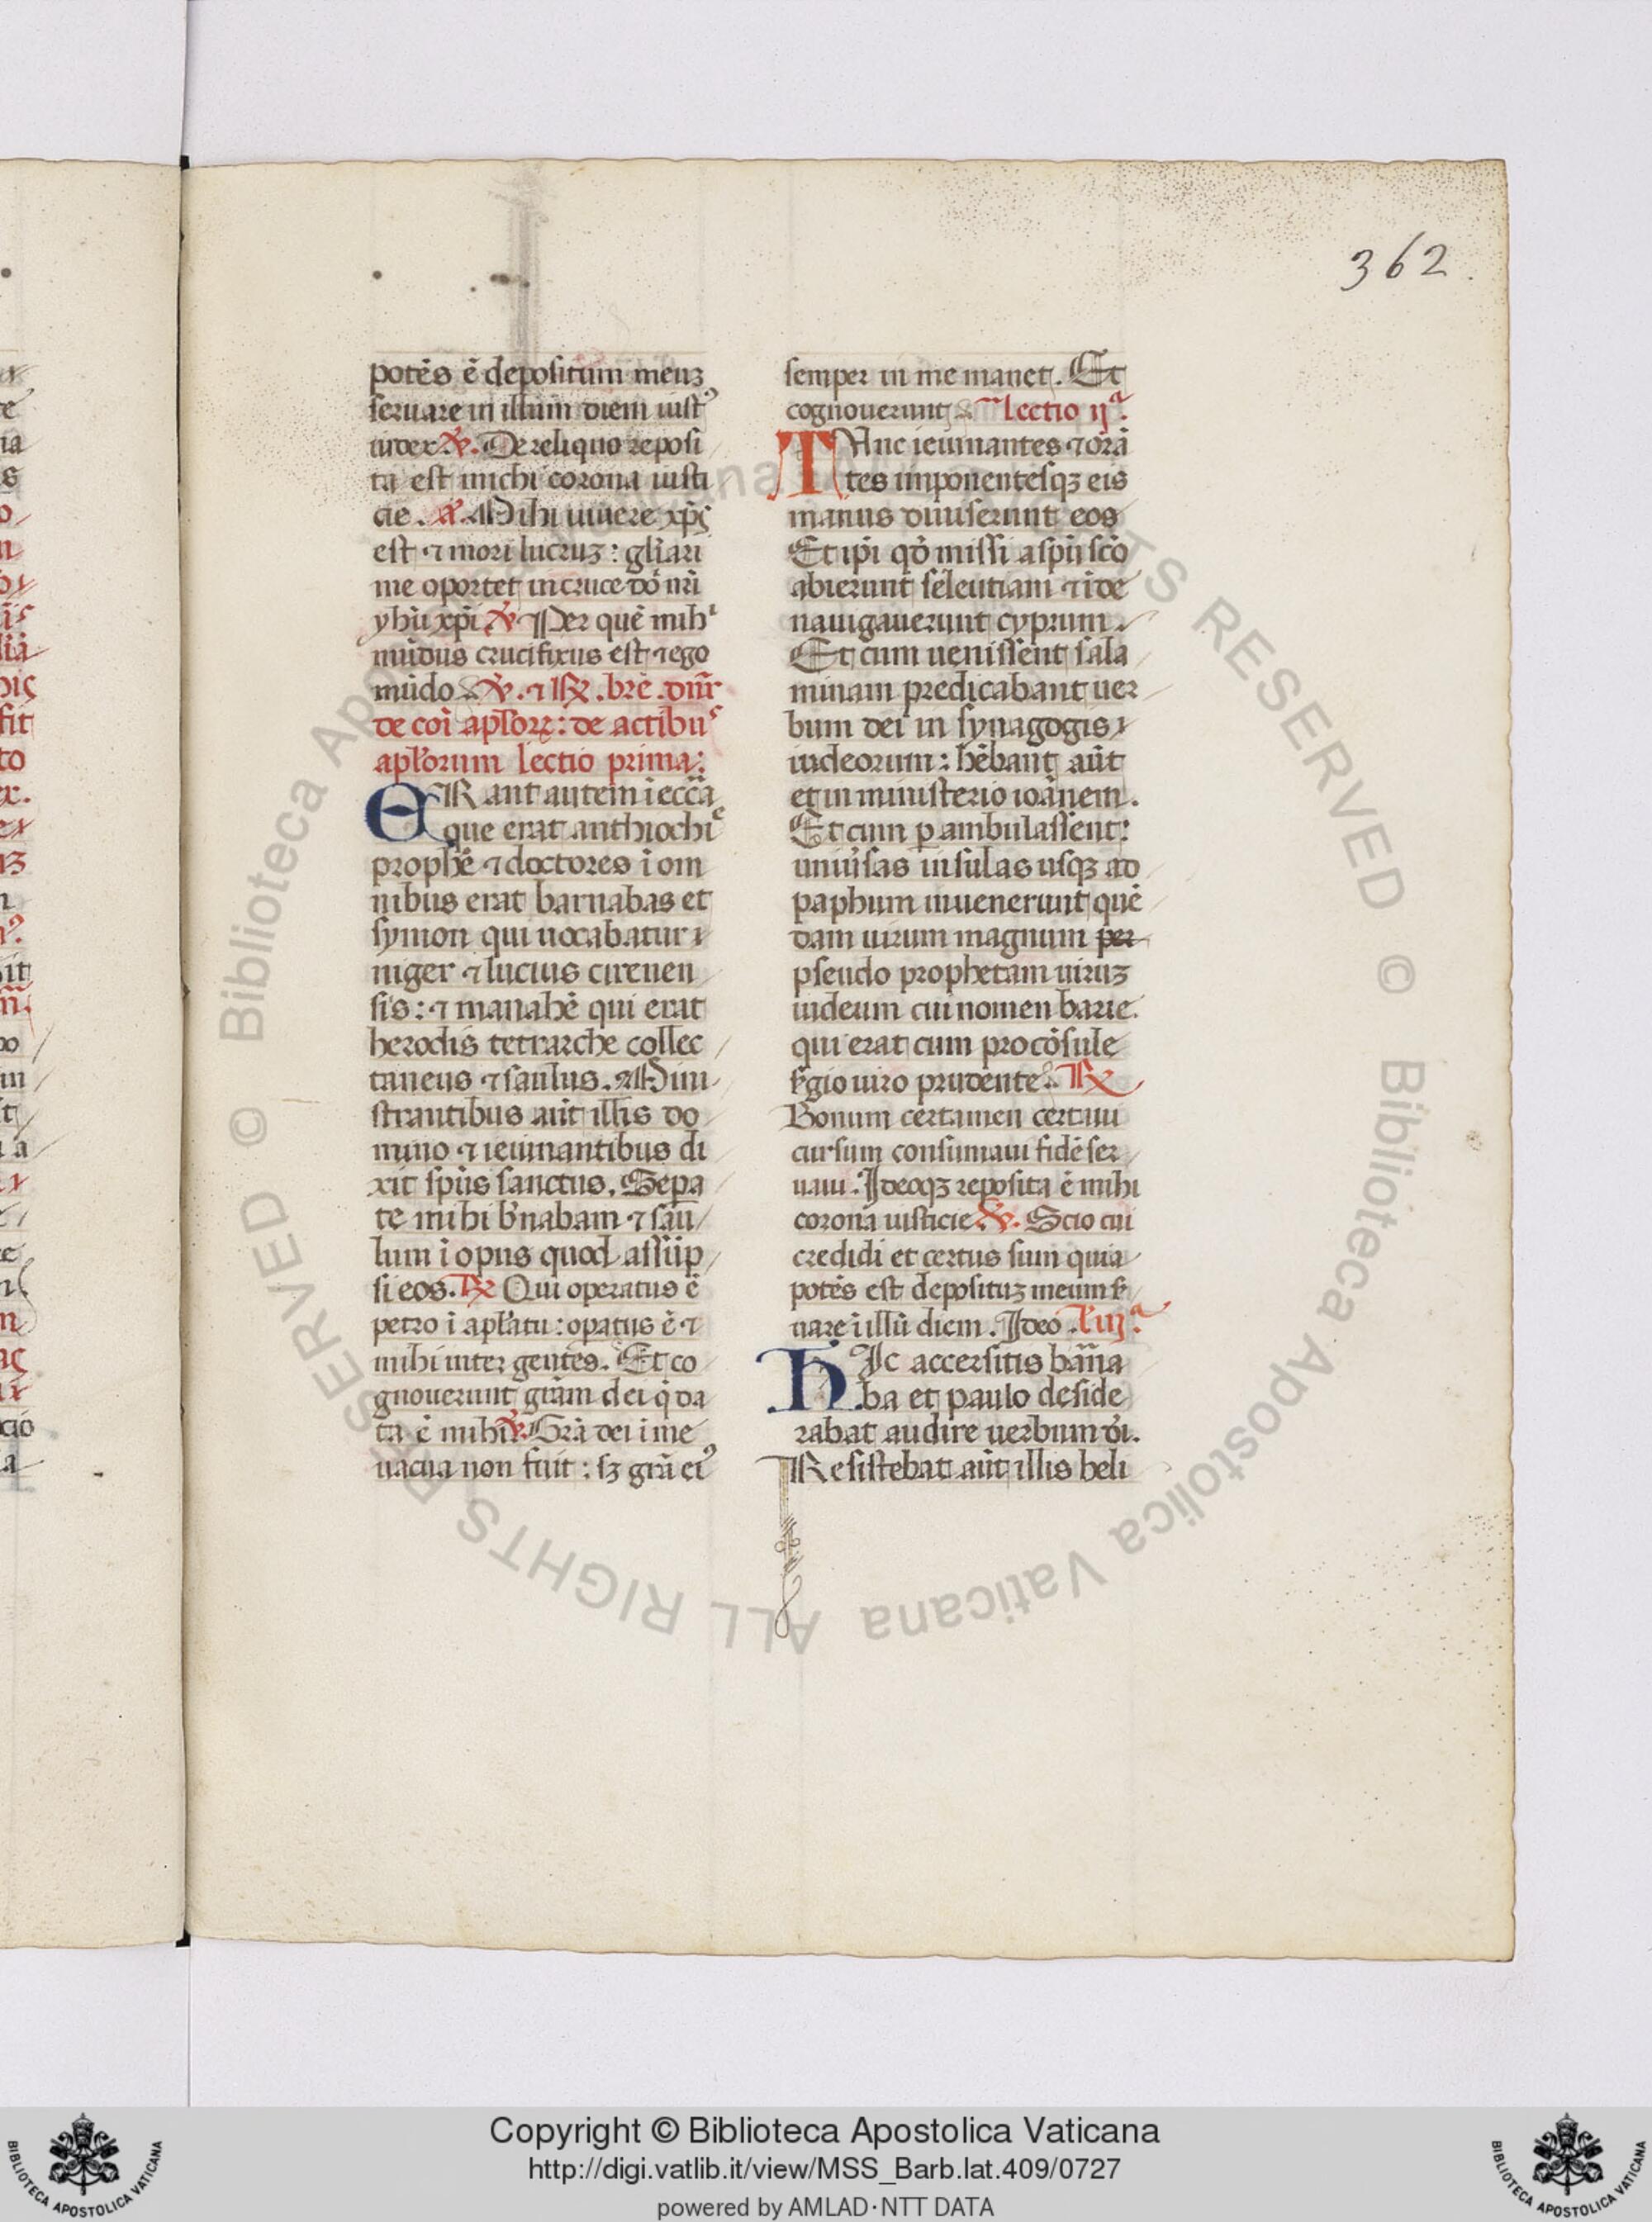 362.
potēs ē depositum meuꝫ
seruare in illum diem iustꝰ
iudex. ℣. De reliquo reposi
ta est michi corona iusti
cie. a͞. Mihi uiuere xp̄ς
est ⁊ mori lucruꝫ : gl̄iari
me oportet in cruce dō nr̄i
yhū xp̄i ℣ Per quē mihi
mūdus crucifixus est ⁊ ego
mūdo. ℣. ⁊ ℟. bre. dnr̄
de coī apl̄oꝝ : de actibus
apl̄orum lectio prima :
ERant autem ī ecc̄a
que erat anthiochie
prophē ⁊ doctores ī om
nibus erat barnabas et
symon qui uocabatur
niger ⁊ lucius cirenen
sis : ⁊ manahē qui erat
herodis tetrarche collec
taneus ⁊ saulus. Mini
strantibus aūt illis do
mino ⁊ ieiunantibus di
xit sp̄us sanctus. Sepa
te mihi b̓nabam ⁊ sau
lum ī opus quod assūp
si eos. ℟ Qui operatus ē
petro ī apl̄atu : opatus ē ⁊
mihi inter gentes. Et co
gnouerunt grām dei q̄ da
ta ē mihi ℣. Grā dei ī me
uacua non fuit : sꝫ grā eiꝰ
semper in me manet. Et
cognouerunt. lectio ijª.
TUnc ieiunantes ⁊ orā
tes imponentesqꝫ eis
manus dimiserunt eos
Et ip̄i qȯ missi a sp̄u scō
abierunt seleutiam ⁊ īde
nauigauerunt cyprum.
Et cum uenissent sala
minam predicabant uer
bum dei in synagogis
iudeorum : hēbant aūt
et in ministerio ioānem.
Et cum ꝑambulassent :
uniūsas insulas usqꝫ ad
paphum inuenerunt quē
dam uirum magnum per
pseudo prophetam uiruꝫ
iudeum cui nomen barie.
qui erat cum procōsule
s̓gio uiro prudente. ℟
Bonum certamen certaui
cursum consumaui fidē ser
uaui : Ideoqꝫ reposita ē mihi
corona iusticie ℣. Scio cui
credidi et certus sum quia
potēs est deposituꝫ meum s̓
uare ī illū diem. Ideo. l̓ iijª.
HIc accersitis barna
ba et paulo deside
rabat audire uerbum dī.
Resistebat aūt illis heli
Copyright © Biblioteca Apostolica Vaticana
http://digi.vatlib.it/view/MSS_Barb.lat.409/0727
powered by AMLAD·NTT DATA